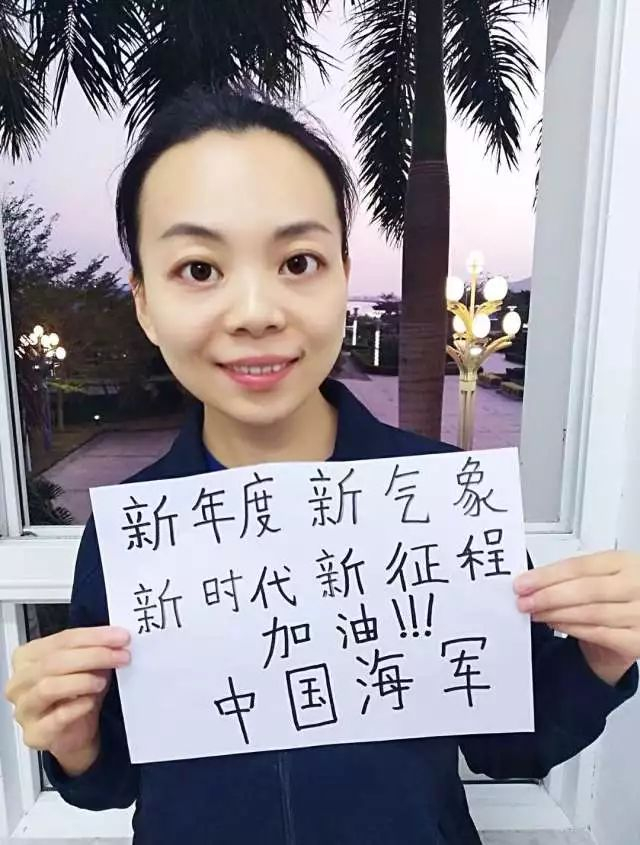 新年度新气象
新时代新征程
加油!!!
中国海军